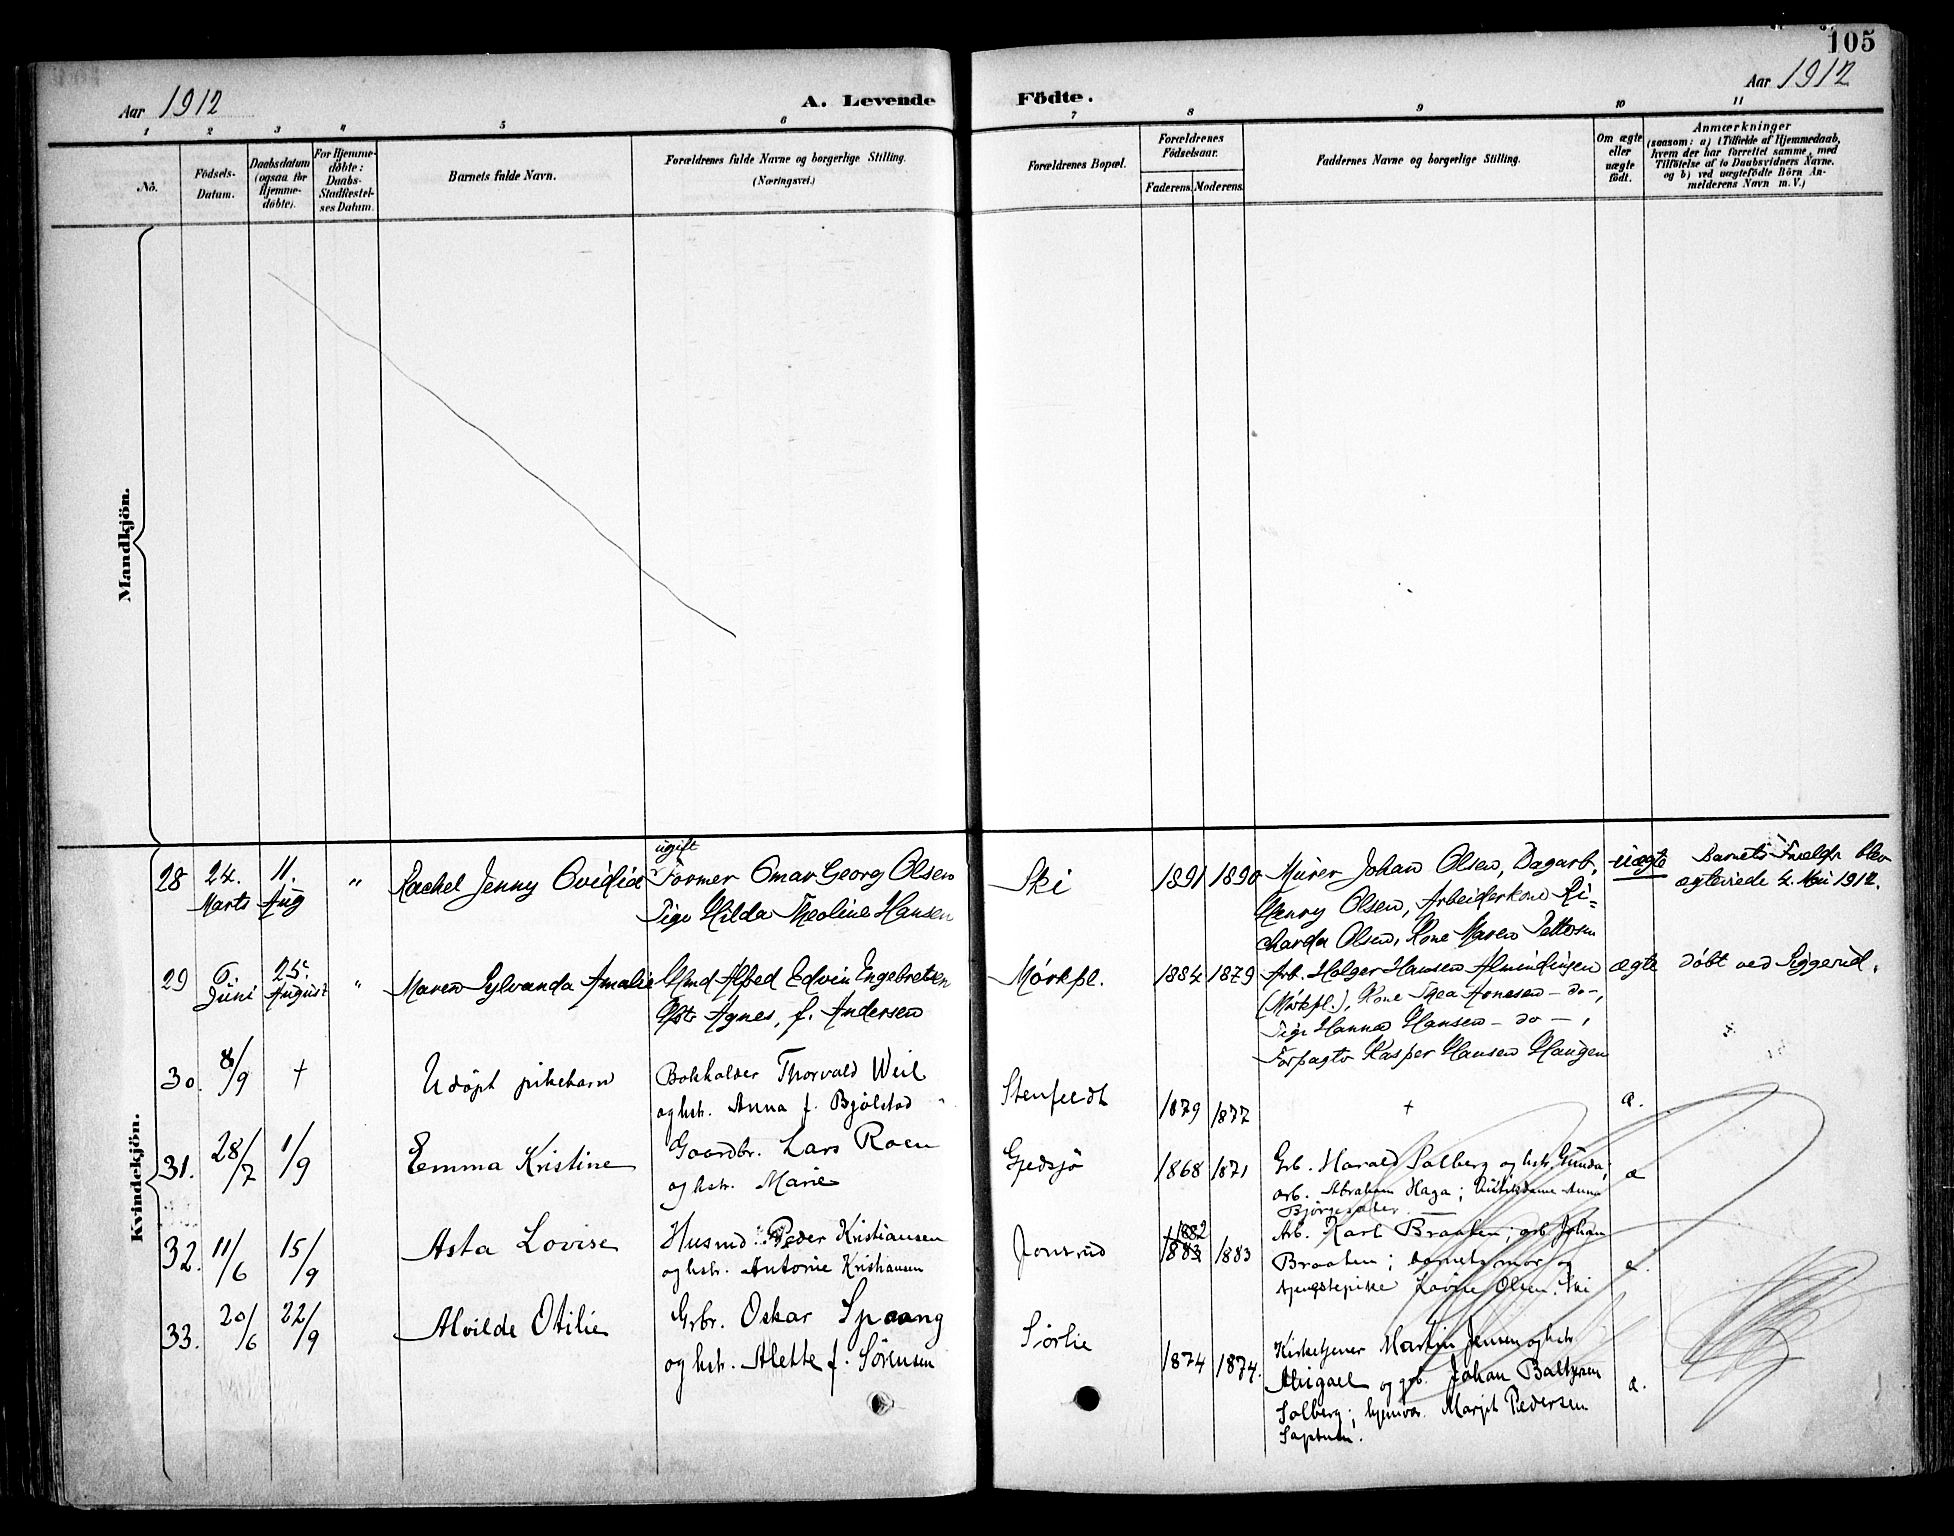 105
Aar 1912
A. Levende Födte.
Aar 1912
1 2 3 4 5 6 7 8 9 10 11
No.
Födsels-
Datum.
Daabsdatum
(ogsaa for
Hjemme-
döbte).
For Hjemme-
döbte:
Daabs-
Stadfæstel-
ses Datum.
Barnets fulde Navn.
Forældrenes fulde Navne og borgerlige Stilling.
(Næringsvei.)
Forældrenes Bopæl.
Forældrenes
Födselsaar.
Faderens. Moderens.
Faddernes Navne og borgerlige Stilling.
Om ægte
eller
uægte
födt.
Anmærkninger
(saasom: a) i Tilfælde af Hjemmedaab,
hvem der har forrettet samme, med
Tilföielse af to Daabsvidners Navne.
og b) ved uægtefödte Börn An-
melderens Navn m. V.)
Mandkjön.
Kvindekjön.
28
24.
Marts
11.
Aug
"
Rachel Jenny Ovidia
ugift
Former Omar Georg Olsen
Pige Hilda Theoline Hansen
Ski
1891 1890
Murer Johan Olsen, Dagarb.
Henry Olsen, Arbeiderkone Ri=
charda Olsen, Kone Maren Pettersen
uægte
Barnets Forældr blev
ægteviede 4. Mai 1912.
29
6.
Juni
25.
August
"
Maren Sylvanda Amalie
Gmd Alfred Edvin Engebretsen
Hstr Agnes, f. Andersen
Mörkpl.
1884 1879
Arb. Holger Hansen Almindingen
(Mörkpl.), Kone Thea Arnesen - do -,
Pige Hanna Hansen - do -,
Forpagter Kasper Hansen Haugen
ægte
döbt ved Siggerud.
30.
8/9
+
Udöpt pikebarn
Bokholder Thorvald Weil
og hstr. Anna f. Bjölstad
Stenfeldt
1879 1877
+
a.
31.
28/7
1/9
Emma Kristine
Gaardbr. Lars Roen
og hstr. Marie
Gjedsjö
1868 1871
Grb. Harald Solberg og hstr. Gunda;
arb. Abraham Haga; Anna
æ
32.
11/6
15/9
Asta Lovise
Husmd. Peder Kristiansen
og hstr. Antonie Kristiansen
Jonsrud
1882
1883 1883
Arb. Karl Braaten; arb. Johan
Braaten; barnets mor og
tjenestepike Olsen. Ski
33.
20/6
22/9
Alvilde Otilie
Grbr. Oskar Spaang
og hstr. Alette f. Sörensen
Sörlie
1874 1874.
Kirketjener Martin Jensen og hstr
Abigael og grb. Johan Baltzersen
Solberg; Margit Pedersen
a.